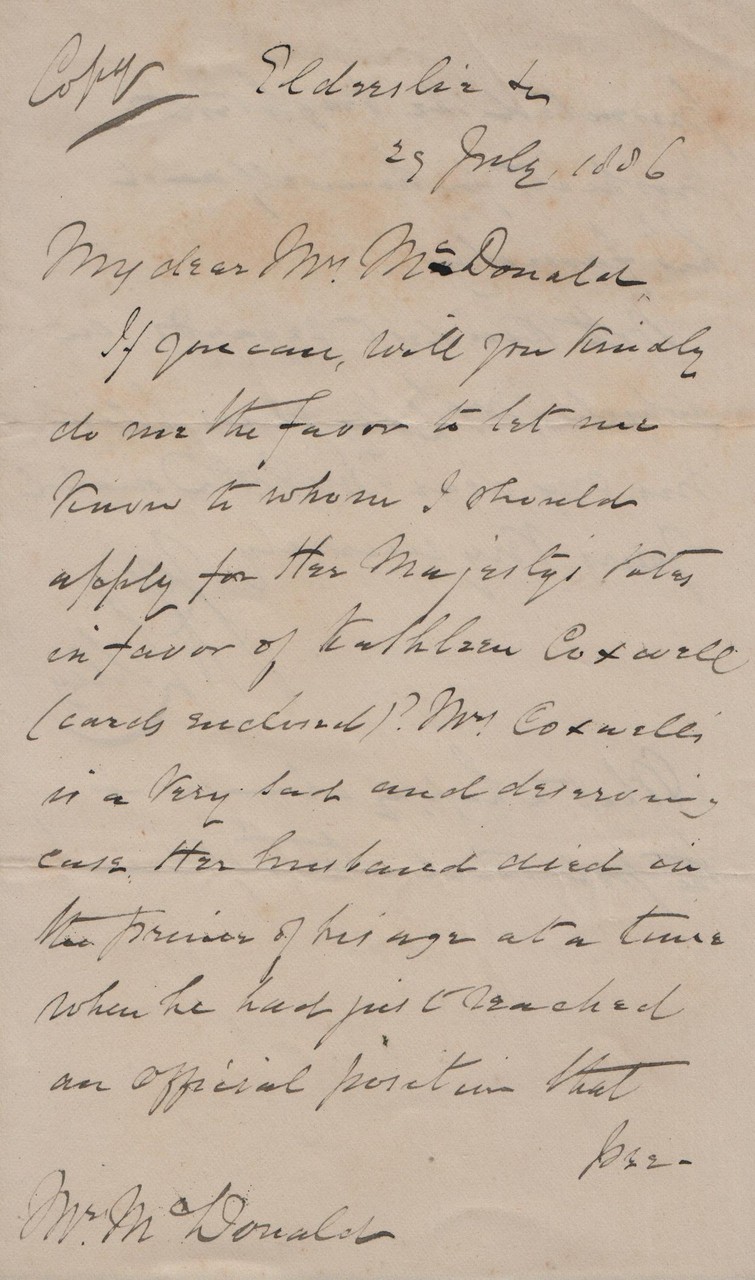 Copy Elderslie &c
29 July, 1886
My dear Mrs. McDonald
If you can, will you kindly
do me the favor to let me
know to whom I should
apply for Her Majesty's votes
in favor of Kathleen Coxwell
(cards enclosed)? Mrs Coxwell's
is a very sad and deserving
case. Her husband died in
the prime of his age at a time
when he had just reached
an official position that
pre-
Mrs. McDonald